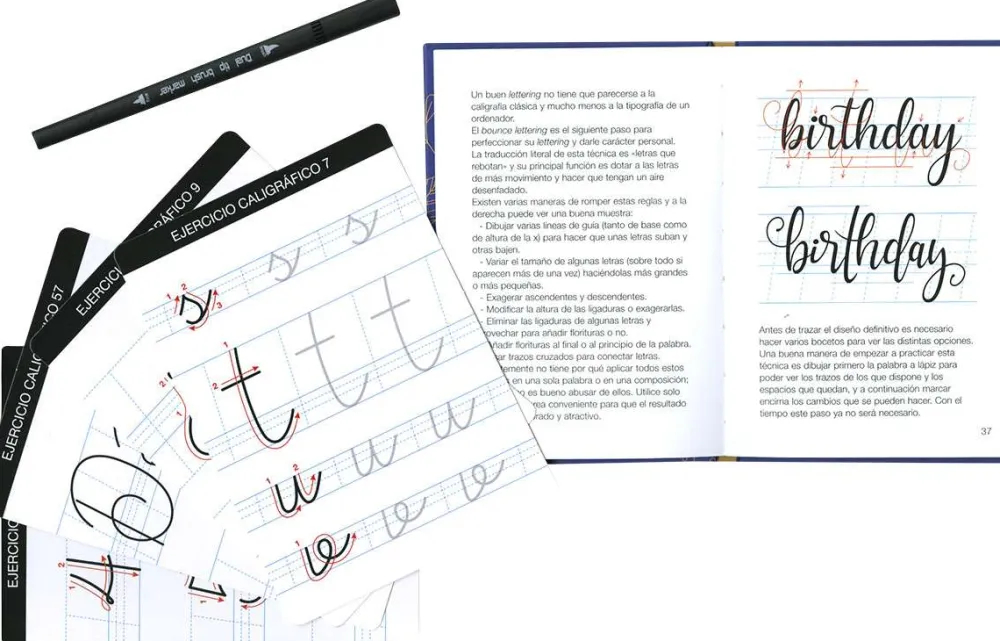 Dual tip brush marker
EJERCICIO CALIGRÁFICO 7
s s s
t t t
u u u
e e e
EJERCIC
GRÁFICO 9
EJERCICIO CALIG
O 57
EJERCICIO
Un buen lettering no tiene que parecerse a la
caligrafía clásica y mucho menos a la tipografía de un
ordenador.
El bounce lettering es el siguiente paso para
perfeccionar su lettering y darle carácter personal.
La traducción literal de esta técnica es «letras que
rebotan» y su principal función es dotar a las letras
de más movimiento y hacer que tengan un aire
desenfadado.
Existen varias maneras de romper estas reglas y a la
derecha puede ver una buena muestra:
- Dibujar varias líneas de guía (tanto de base como
de altura de la x) para hacer que unas letras suban y
otras bajen.
- Variar el tamaño de algunas letras (sobre todo si
aparecen más de una vez) haciéndolas más grandes
o más pequeñas.
- Exagerar ascendentes y descendentes.
- Modificar la altura de las ligaduras o exagerarlas.
- Eliminar las ligaduras de algunas letras y
ovechar para añadir florituras o no.
ñadir florituras al final o al principio de la palabra.
ar trazos cruzados para conectar letras.
emente no tiene por qué aplicar todos estos
s en una sola palabra o en una composición;
o es bueno abusar de ellos. Utilice solo
rea conveniente para que el resultado
rado y atractivo.
birthday
birthday
Antes de trazar el diseño definitivo es necesario
hacer varios bocetos para ver las distintas opciones.
Una buena manera de empezar a practicar esta
técnica es dibujar primero la palabra a lápiz para
poder ver los trazos de los que dispone y los
espacios que quedan, y a continuación marcar
encima los cambios que se pueden hacer. Con el
tiempo este paso ya no será necesario.
37